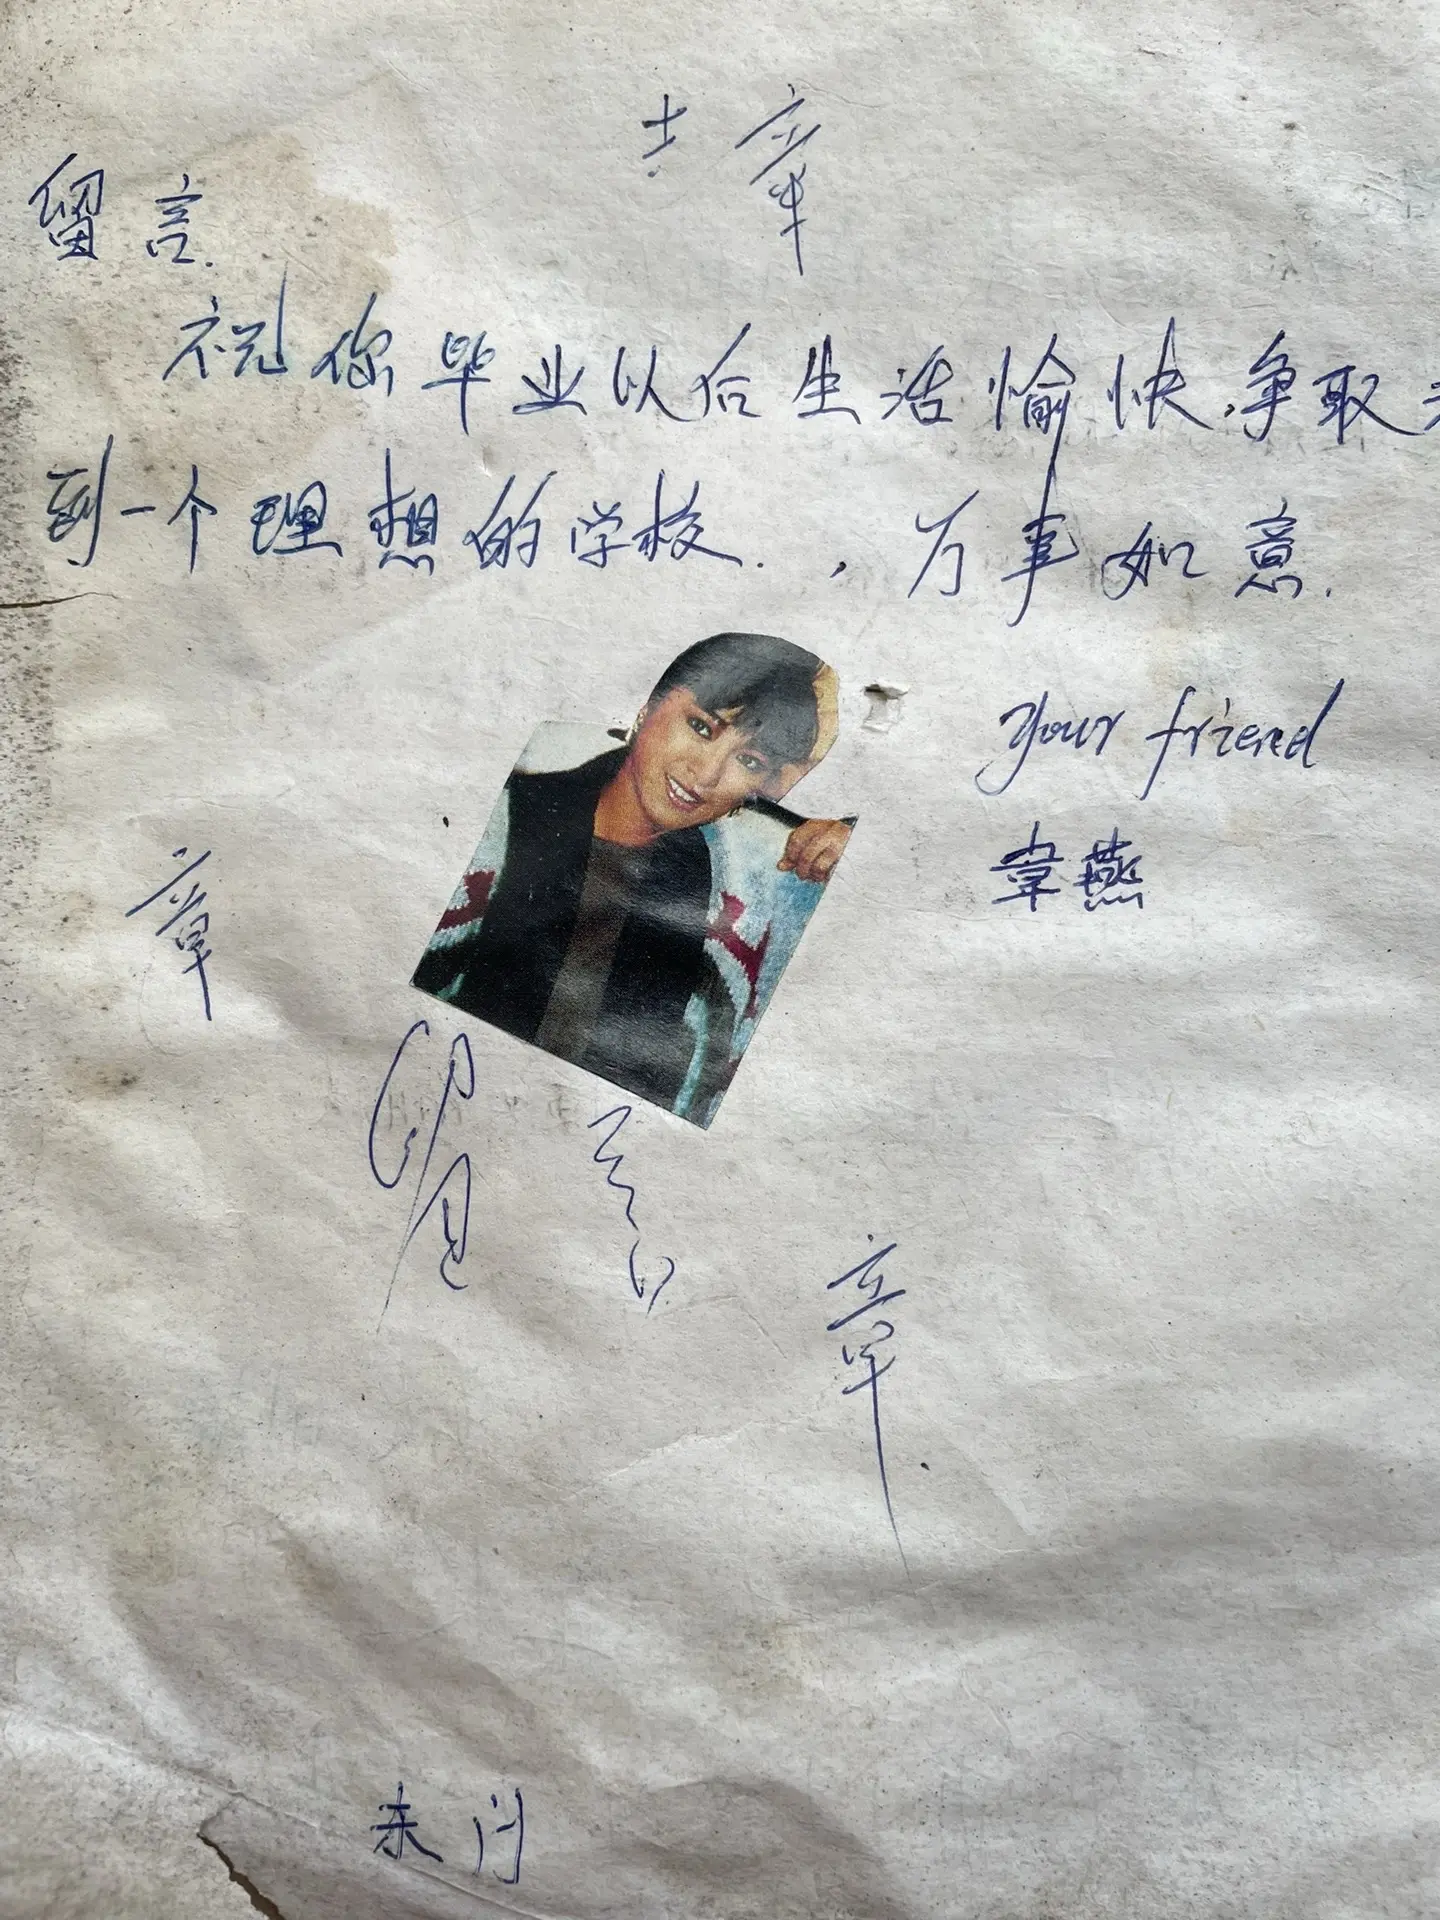 章
留言.
祝你毕业以后生活愉快,争取考
到一个理想的学校.,万事如意.
your friend
韦燕
章
留言
章
朱门